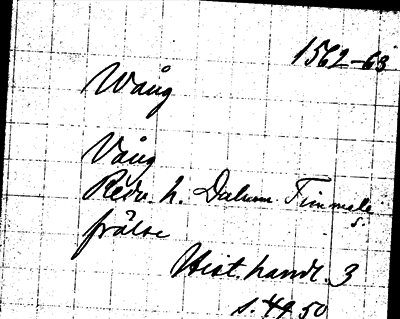 1562-63
Wång
Vång
Redv. h. Dalum Timmele
s.
frälse
Hist. handl. 3
s. 49, 50